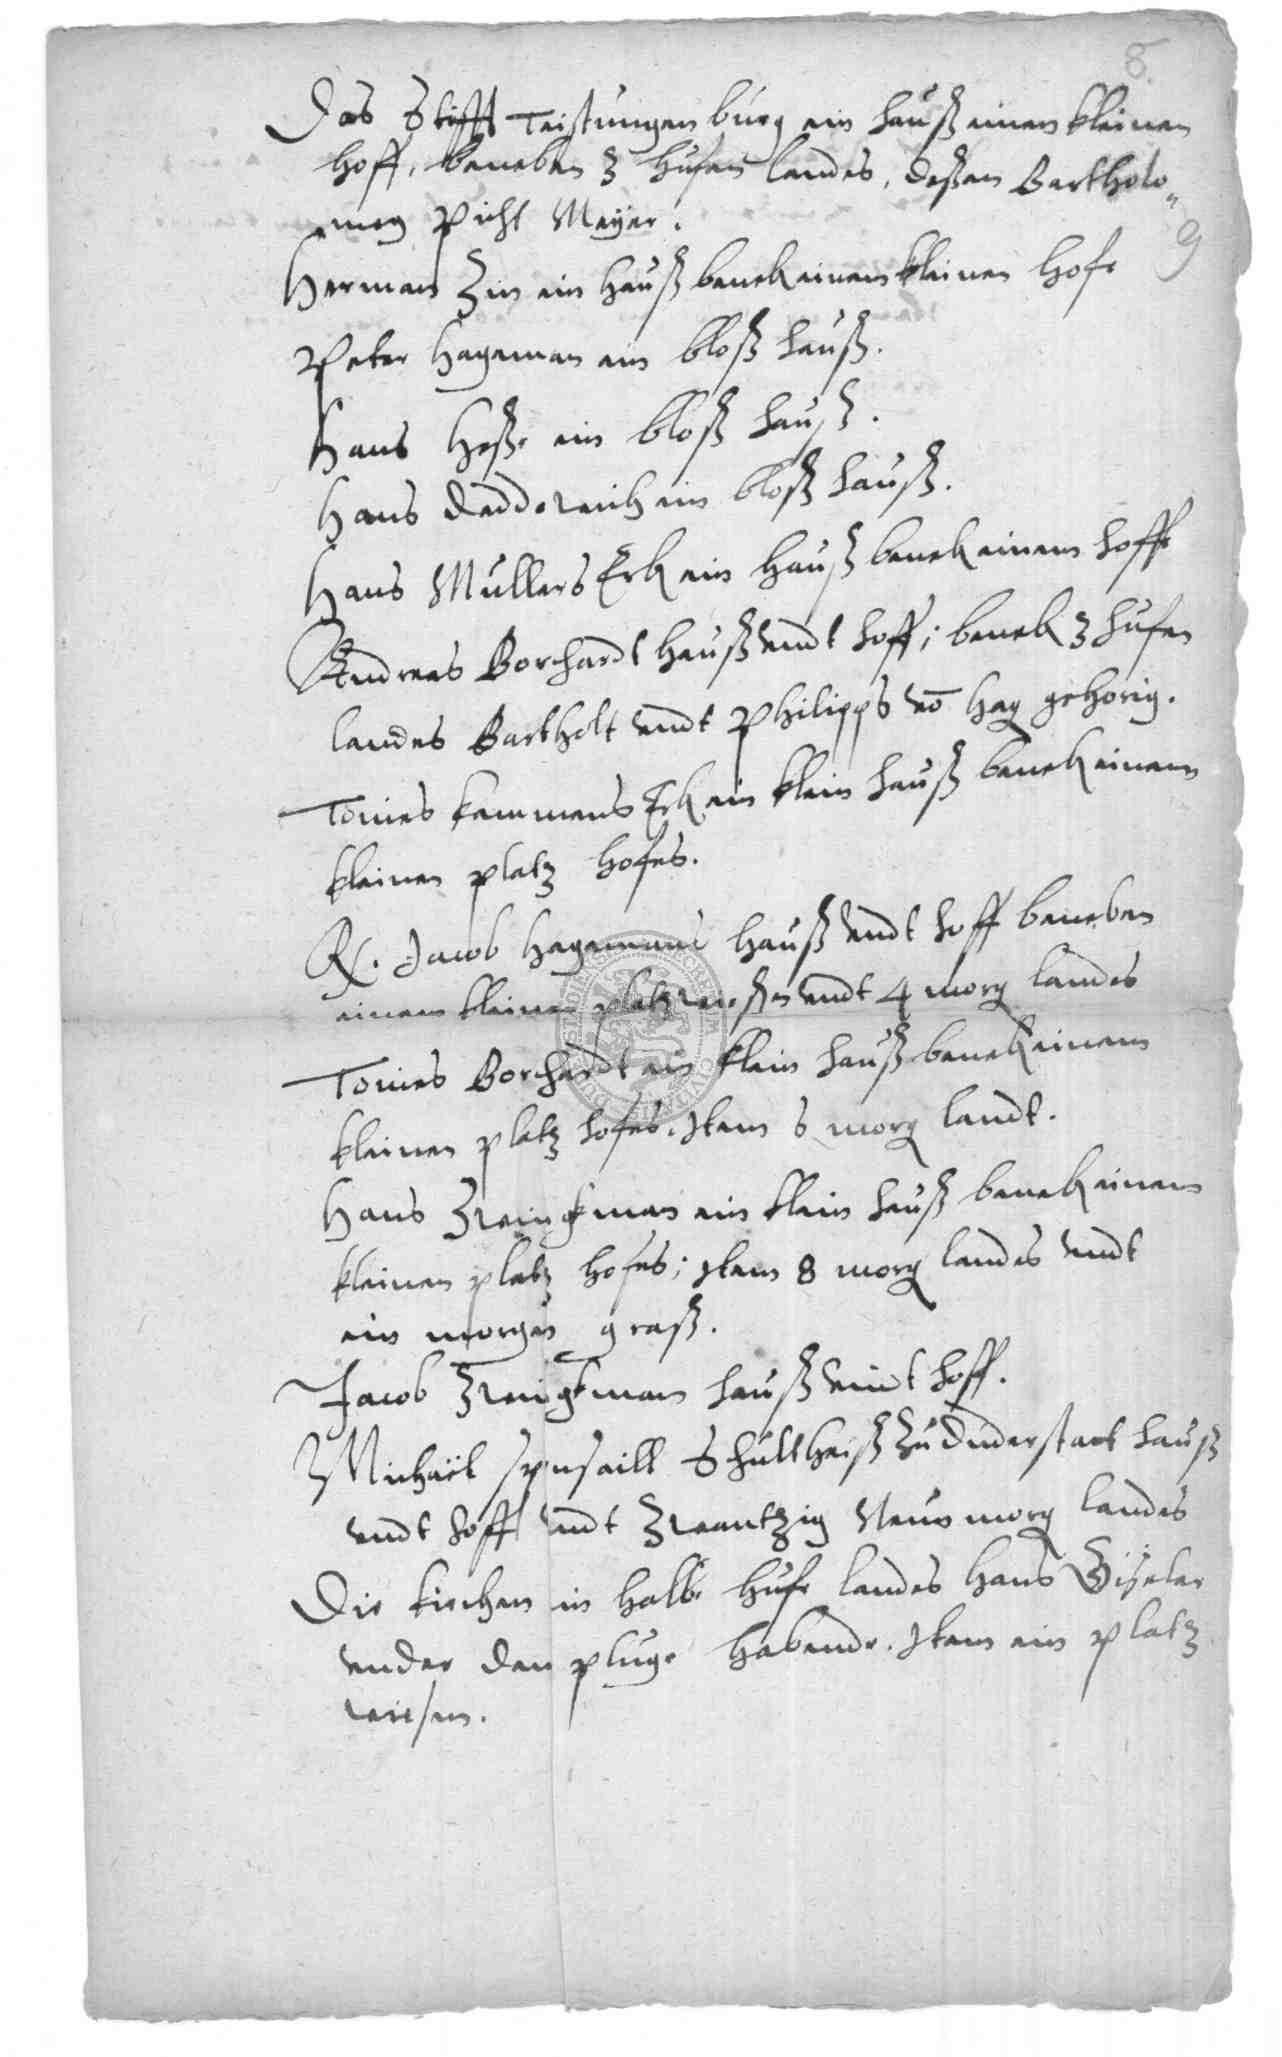 8.
Das Stifft Teistungenburg ein hauß einen kleinen
hoff, beneben 3 hufen landes, deßen Bartholo„
mey Picht Meyer.
9
Herman Zin ein hauß beneb einem kleinen hofe
Peter Hageman ein bloß hauß.
Hans Heße ein bloß hauß.
Hans Dedderich ein bloß hauß.
Hans Mullers Erb ein hauß beneb einem hoffe
Andreas Borchardt hauß undt hoff; beneb 3 hufen
landes Barthold undt Philipps vō Hag gehorig.
Tonies Kemmens Erb ein klein hauß beneb einem
kleinen platz hofes.
R. Jacob Hagemans hauß undt hoff beneben
einem kleinen platz wießen undt 4 morg landes
Tonies Borchardt ein klein hauß beneb einem
kleinen platz hofes. Item 5 morg landt.
Hans Zwengkman ein klein hauß beneb einem
kleinen platz hofes; Item 8 morg landes undt
ein morgen graß.
Jacob Zwengkman hauß undt hoff.
Michaël Schultheiß zu Duderstadt hauß
undt hoff undt Zwantzig Neun morg landes
Die kirchen ein halbe hufe landes Hans Giseler
under den pluge habende. Item ein platz
wiesen.